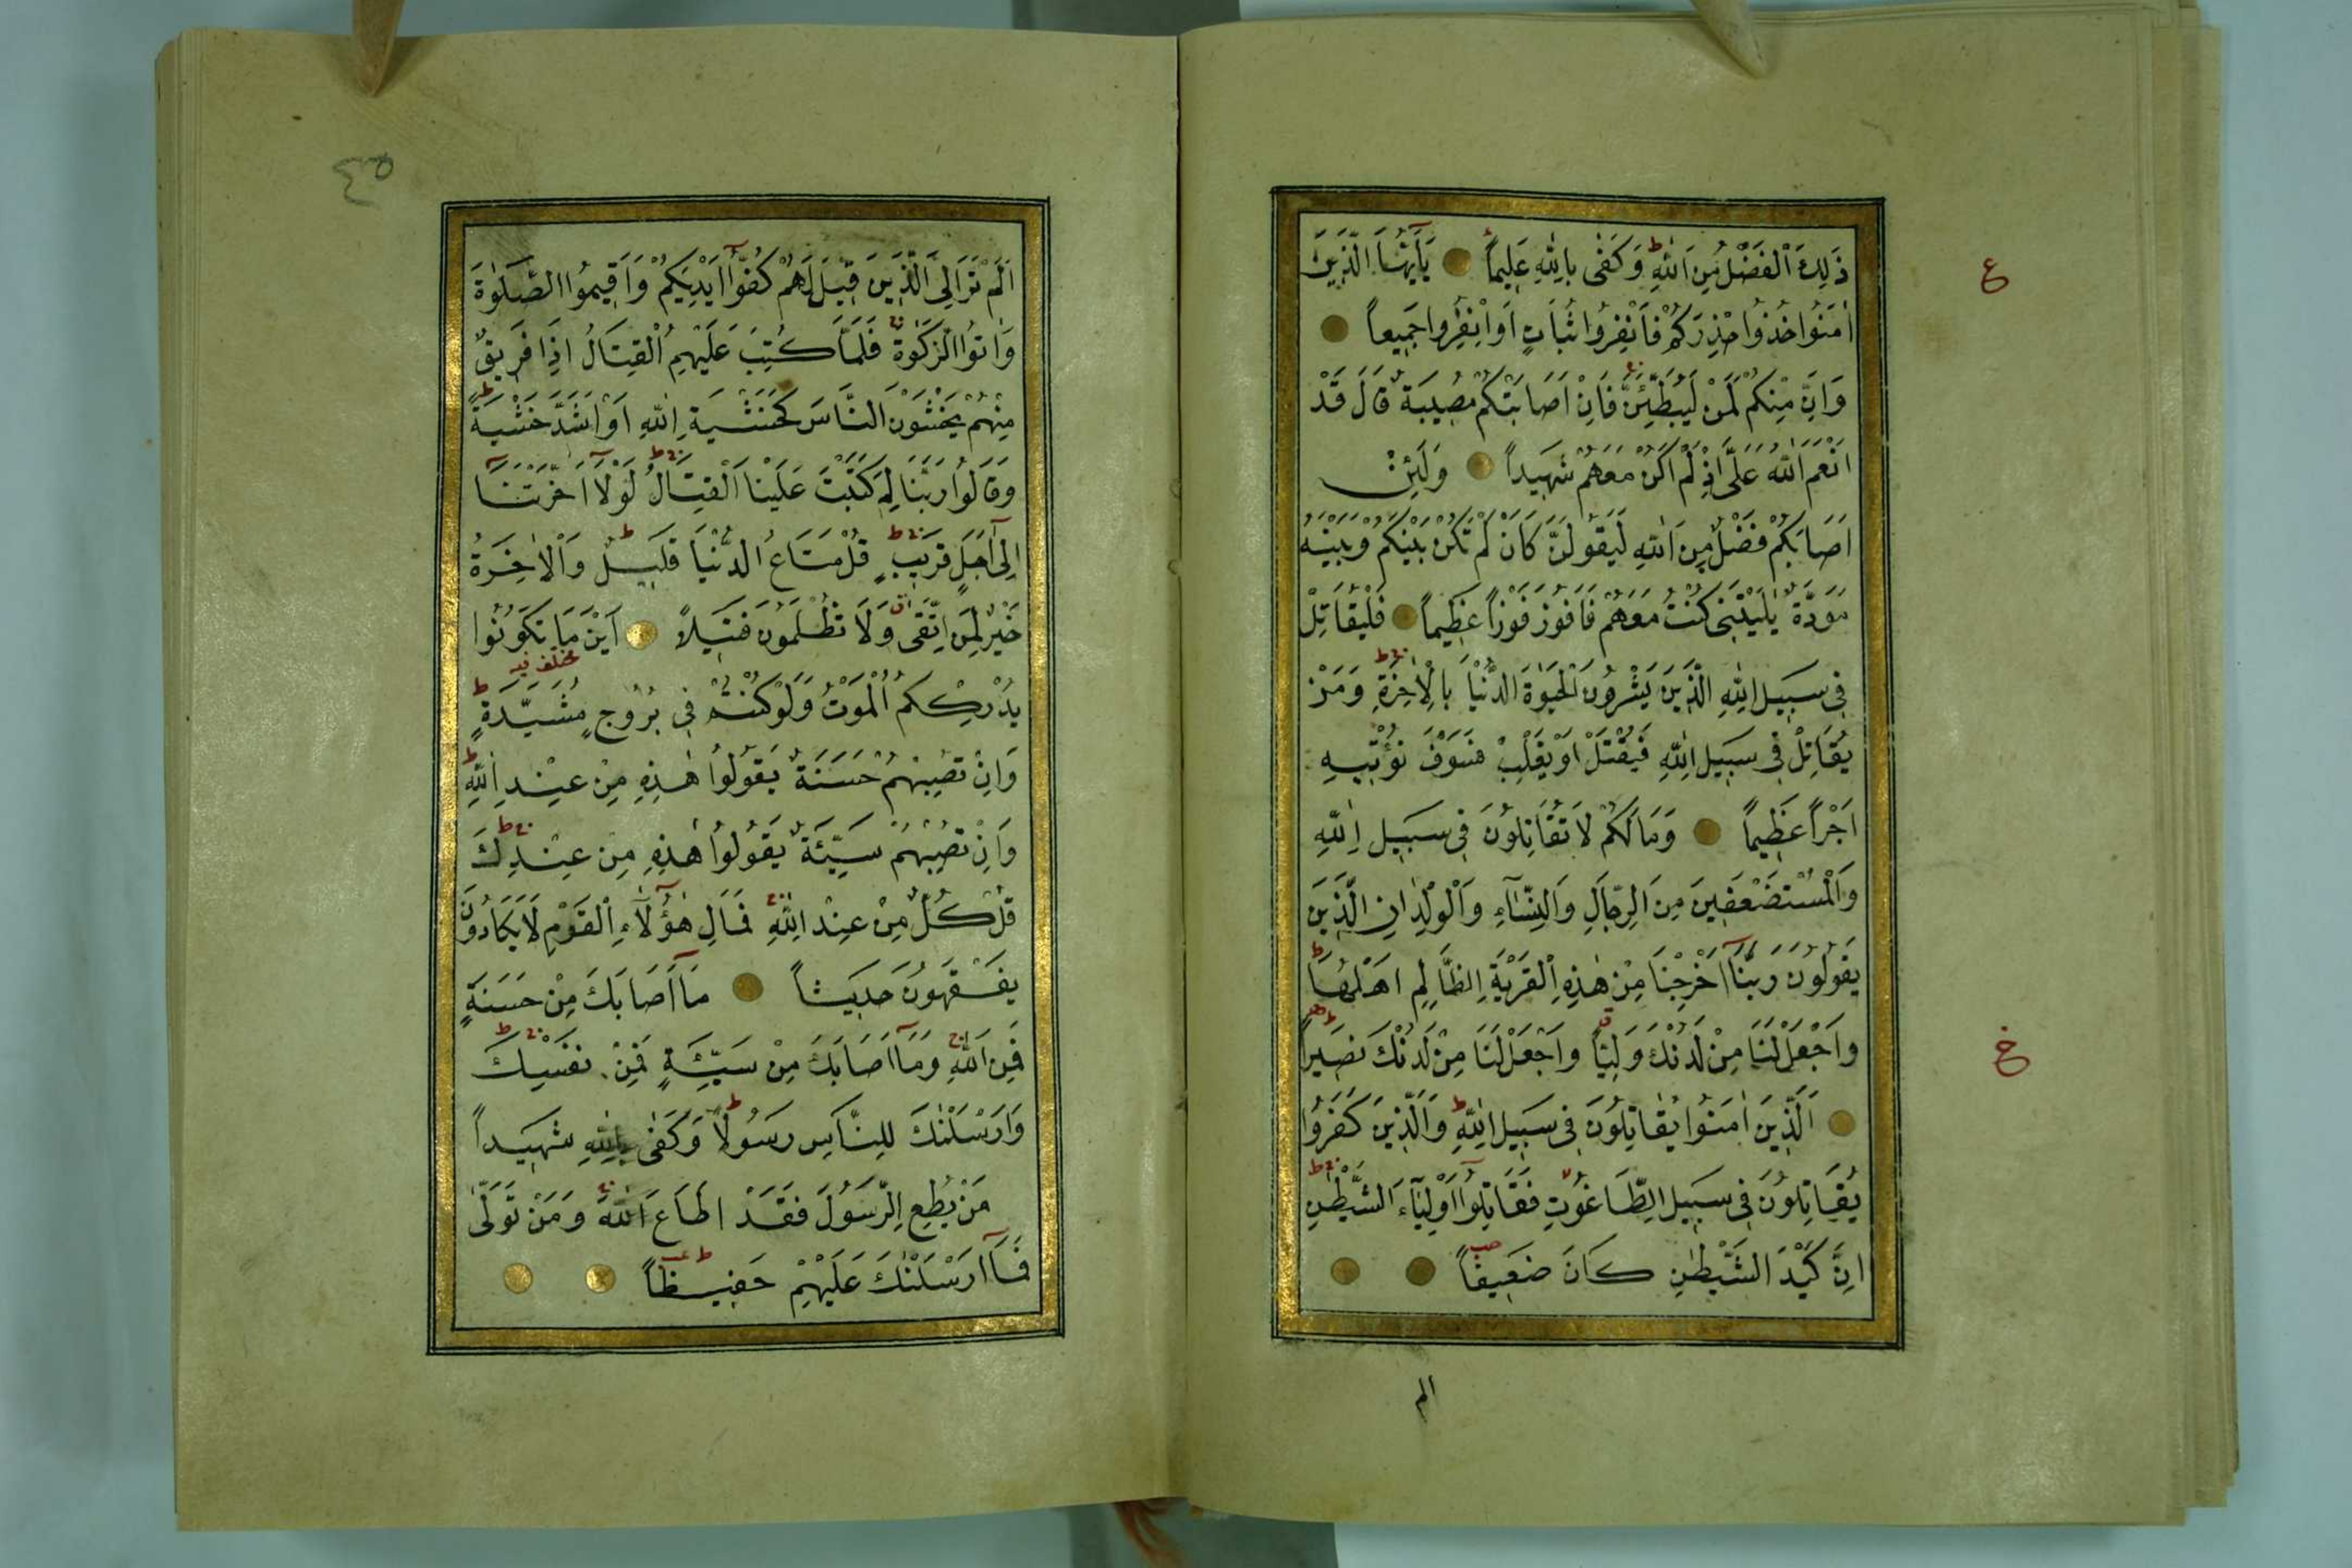 ع
ذٰلِكَ الْفَضْلُ مِنَ اللّٰهِ ط وَكَفٰى بِاللّٰهِ عَلِيماً يَآاَيُّهَا الَّذِينَ
اٰمَنُوا خُذُوا حِذْرَكُمْ فَانْفِرُوا ثُبَاتٍ اَوِانْفِرُوا جَمِيعاً
وَاِنَّ مِنْكُمْ لَمَنْ لَيُبَطِّئَنَّ فَاِنْ اَصَابَتْكُمْ مُصِيبَةٌ قَالَ قَدْ
اَنْعَمَ اللّٰهُ عَلَىَّ اِذْ لَمْ اَكُنْ مَعَهُمْ شَهِيداً وَلَئِنْ
اَصَابَكُمْ فَضْلٌ مِنَ اللّٰهِ لَيَقُولَنَّ كَاَنْ لَمْ تَكُنْ بَيْنَكُمْ وَبَيْنَهُ
مَوَدَّةٌ يٰلَيْتَنِى كُنْتُ مَعَهُمْ فَاَفُوزَ فَوْزاً عَظِيماً فَلْيُقَاتِلْ
فِى سَبِيلِ اللّٰهِ الَّذِينَ يَشْرُونَ الْحَيٰوةَ الدُّنْيَا بِالْاٰخِرَةِ ط وَمَنْ
يُقَاتِلْ فِى سَبِيلِ اللّٰهِ فَيُقْتَلْ اَوْ يَغْلِبْ فَسَوْفَ نُؤْتِيهِ
اَجْراً عَظِيماً وَمَالَكُمْ لَا تُقَاتِلُونَ فِى سَبِيلِ اللّٰهِ
وَالْمُسْتَضْعَفِينَ مِنَ الرِّجَالِ وَالنِّسَآءِ وَالْوِلْدَانِ الَّذِينَ
يَقُولُونَ رَبَّنَآ اَخْرِجْنَا مِنْ هٰذِهِ الْقَرْيَةِ الظَّالِمِ اَهْلُهَا ط
وَاجْعَلْ لَنَا مِنْ لَدُنْكَ وَلِيّاً وَاجْعَلْ لَنَا مِنْ لَدُنْكَ نَصِيراً
خ
اَلَّذِينَ اٰمَنُوا يُقَاتِلُونَ فِى سَبِيلِ اللّٰهِ ط وَالَّذِينَ كَفَرُوا
يُقَاتِلُونَ فِى سَبِيلِ الطَّاغُوتِ فَقَاتِلُوآ اَوْلِيَآءَ الشَّيْطٰنِ ط
اِنَّ كَيْدَ الشَّيْطٰنِ كَانَ ضَعِيفاً
الم
٤٥
اَلَمْ تَرَ اِلَى الَّذِينَ قِيلَ لَهُمْ كُفُّوآ اَيْدِيَكُمْ وَاَقِيمُوا الصَّلٰوةَ
وَاٰتُوا الزَّكٰوةَ فَلَمَّا كُتِبَ عَلَيْهِمُ الْقِتَالُ اِذَا فَرِيقٌ
مِنْهُمْ يَخْشَوْنَ النَّاسَ كَخَشْيَةِ اللّٰهِ اَوْ اَشَدَّ خَشْيَةً ط
وَقَالُوا رَبَّنَا لِمَ كَتَبْتَ عَلَيْنَا الْقِتَالَ ط لَوْلَآ اَخَّرْتَنَآ
اِلٰىٓ اَجَلٍ قَرِيبٍ ط قُلْ مَتَاعُ الدُّنْيَا قَلِيلٌ ط وَالْاٰخِرَةُ
خَيْرٌ لِمَنِ اتَّقٰى وَلَا تُظْلَمُونَ فَتِيلاً اَيْنَ مَا تَكُونُوا
مختلف فيه
يُدْرِكْكُمُ الْمَوْتُ وَلَوْ كُنْتُمْ فِى بُرُوجٍ مُشَيَّدَةٍ ط
وَاِنْ تُصِبْهُمْ حَسَنَةٌ يَقُولُوا هٰذِهِ مِنْ عِنْدِ اللّٰهِ ط
وَاِنْ تُصِبْهُمْ سَيِّئَةٌ يَقُولُوا هٰذِهِ مِنْ عِنْدِكَ ط
قُلْ كُلٌّ مِنْ عِنْدِ اللّٰهِ فَمَالِ هٰٓؤُلَآءِ الْقَوْمِ لَا يَكَادُونَ
يَفْقَهُونَ حَدِيثاً مَآ اَصَابَكَ مِنْ حَسَنَةٍ
فَمِنَ اللّٰهِ وَمَآ اَصَابَكَ مِنْ سَيِّئَةٍ فَمِنْ نَفْسِكَ ط
وَاَرْسَلْنٰكَ لِلنَّاسِ رَسُولاً ط وَكَفٰى بِاللّٰهِ شَهِيداً
مَنْ يُطِعِ الرَّسُولَ فَقَدْ اَطَاعَ اللّٰهَ وَمَنْ تَوَلّٰى
فَمَآ اَرْسَلْنٰكَ عَلَيْهِمْ حَفِيظاً ط